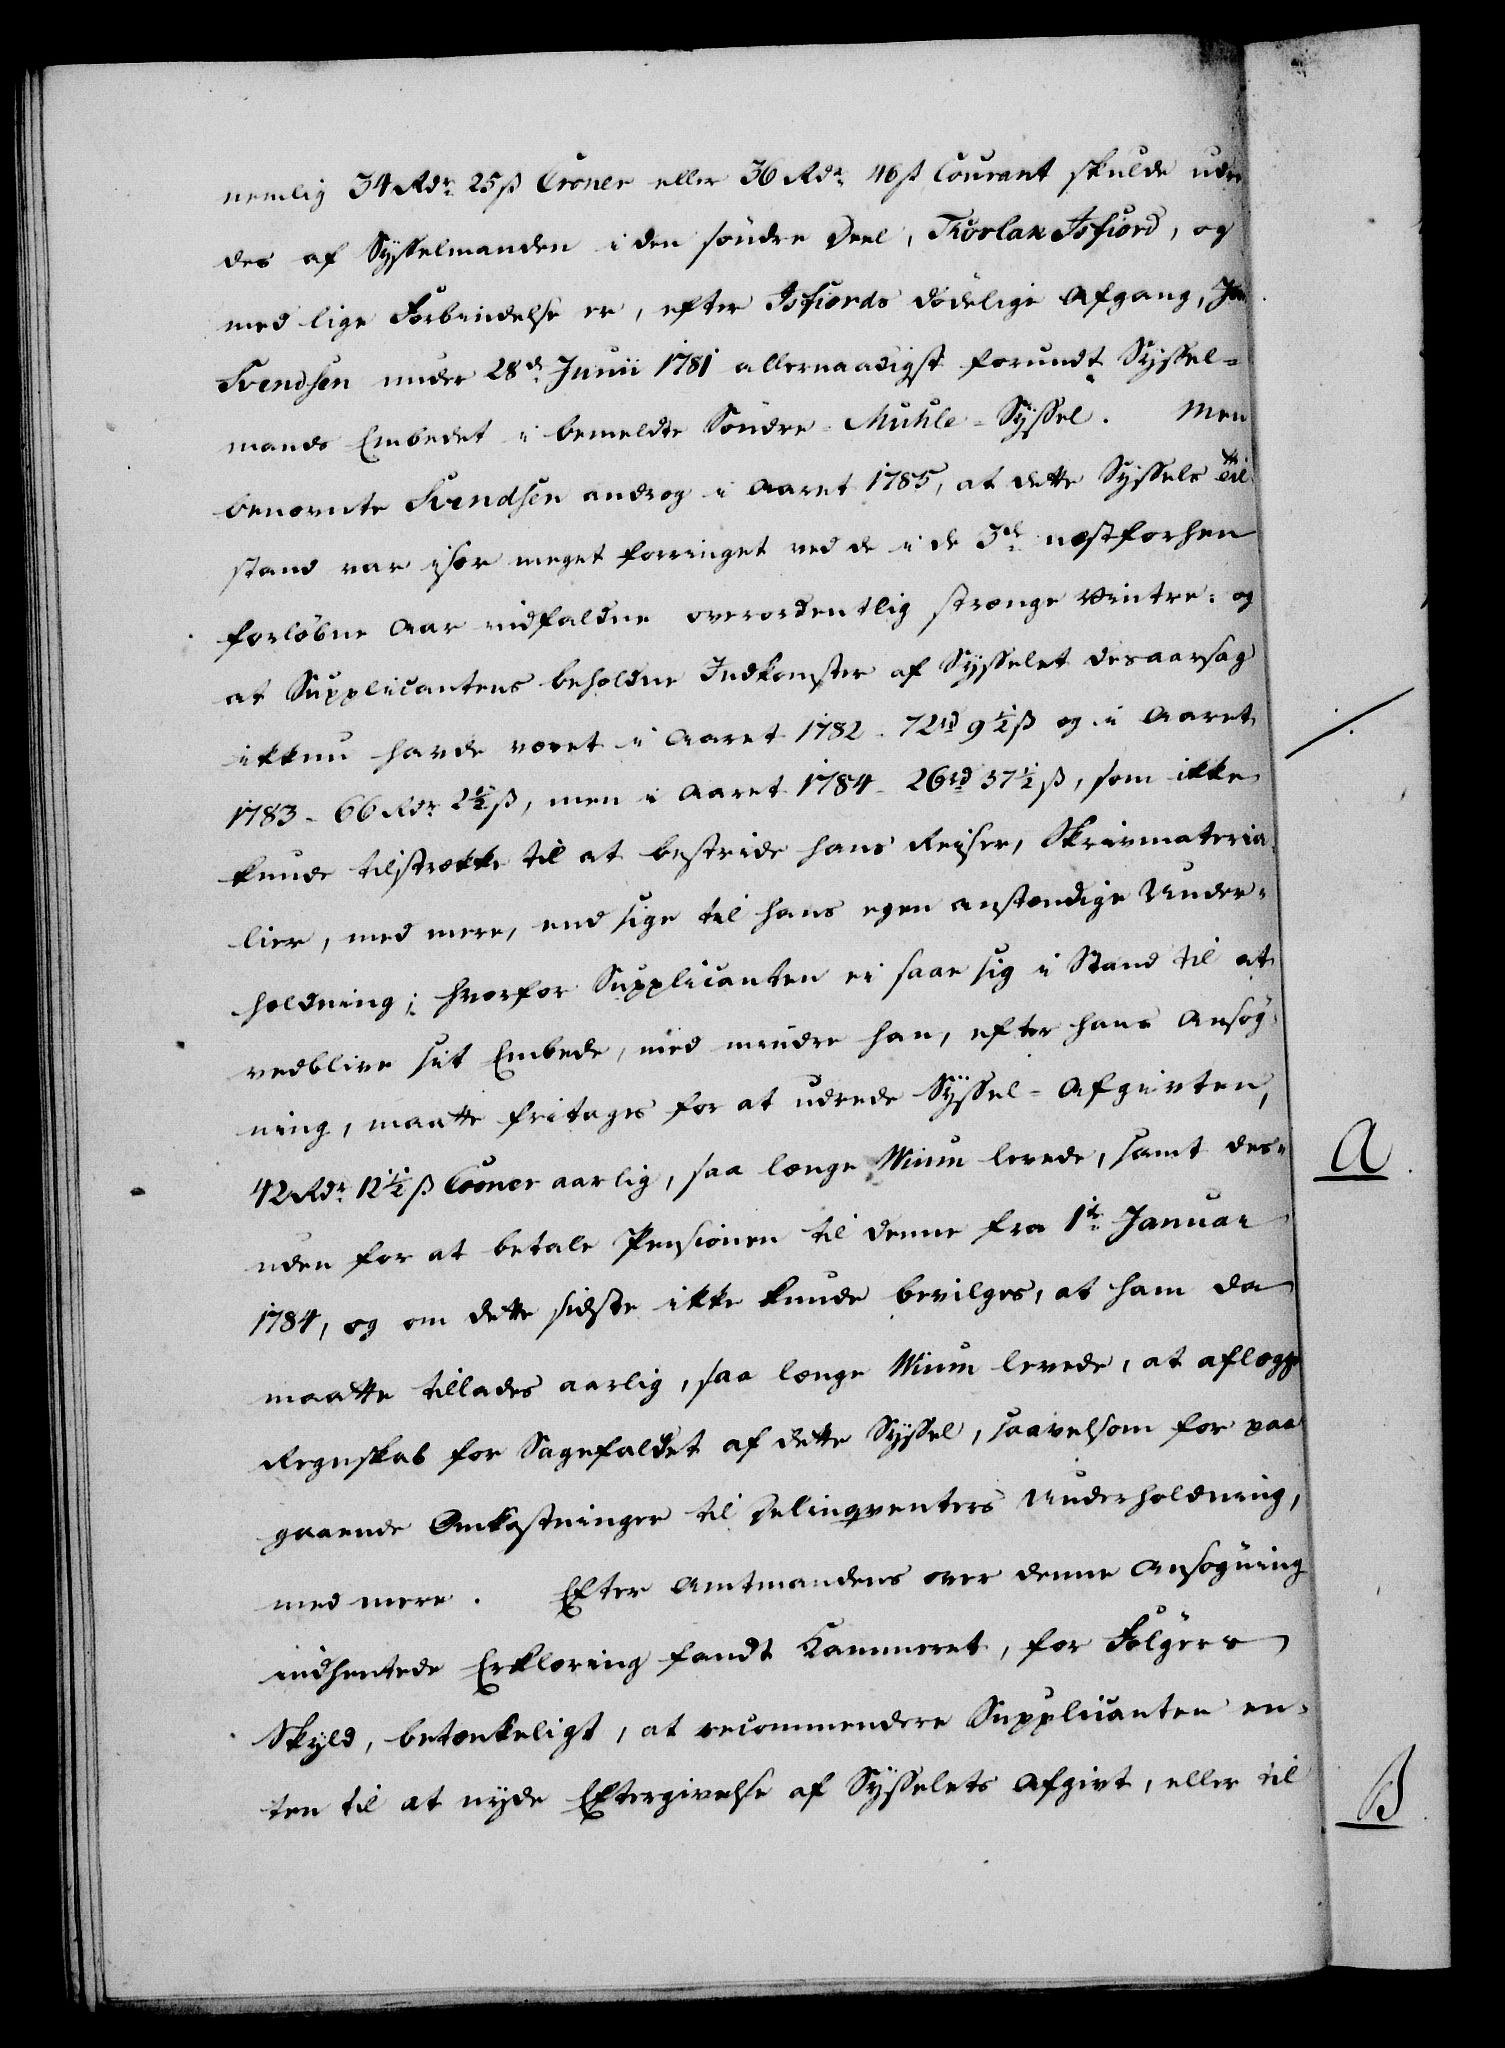 nemlig 34 Rdr. 25 ß Croner eller 36 Rdr. 46 ß Courant skulde udre
des af Sysselmanden i den søndre Deel, Thorlak Isfiord, og
med lige Forbindelse er, efter Isfiords dødelige Afgang, Jon
Svendsen under 28d. Junii 1781 allernaadigst forundt Syssel-
mands Embedet i bemeldte Søndre-Muhle-Syssel. Men
benævnte Svendsen androg i Aaret 1785, at dette Syssels Til
stand var især meget forringet ved de i de 3de næstforhen
forløbne Aar indfaldne overordentlig strænge Vintre: og
at Supplicantens beholdne Indkomster af Sysselet desaarsag
ikkun havde været i Aaret 1782 - 72 rd 9½ ß og i Aaret
1783 - 66 Rdr 2½ ß, men i Aaret 1784 - 26 rd 37½ ß, som ikke
kunde tilstrække til at bestride hans Reiser, Skrivmateria
lier, med mere, end sige til hans egen anstændige Under-
holdning; hvorfor Supplicanten ei saae sig i Stand til at
vedblive sit Embede, med mindre han, efter hans Ansøg-
ning, maatte fritages for at udrede Syssel-Afgivten,
42 Rdr. 12½ ß Croner aarlig, saa længe Wium levede, samt des-
uden for at betale Pensionen til denne fra 1te Januar
1784, og om dette sidste ikke kunde bevilges, at ham da
maatte tillades aarlig, saa længe Wium levede, at aflægge
Regnskab for Sagefaldet af dette Syssel, saavelsom for paa
gaaende Omkostninger til Delinqventers Underholdning,
med mere. Efter Amtmandens over denne Ansøgning
indhentede Erklæring fandt Kammeret, for Følgers
Skyld, betænkeligt, at recommendere Supplicanten en-
ten til at nyde Eftergivelse af Sysselets Afgivt, eller til
A
B